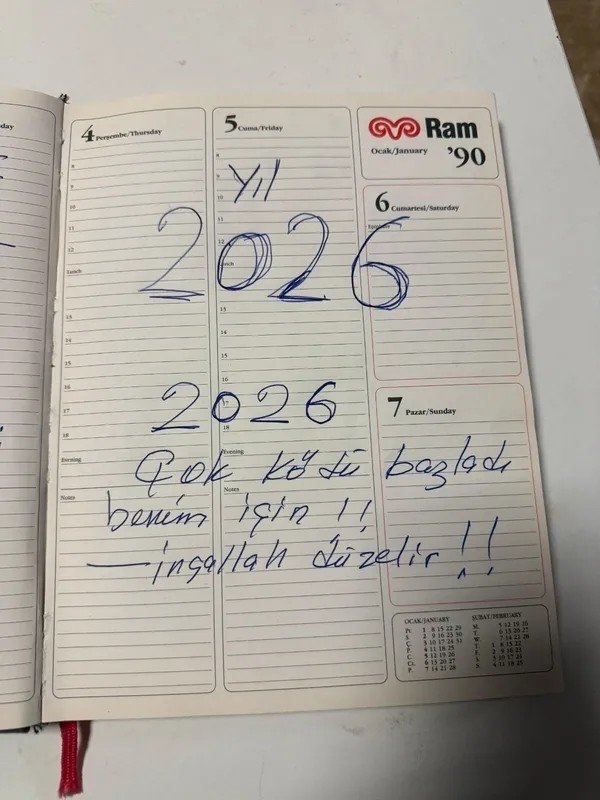 4 Perşembe/Thursday
5 Cuma/Friday
Ram
Ocak/January '90
6 Cumartesi/Saturday
7 Pazar/Sunday
8
9
10
11
12
Lunch
13
14
15
16
17
18
Evening
Notes
8
9
10
11
12
Lunch
13
14
15
16
17
18
Evening
Notes
Yıl
2026
2026
Çok kötü başladı
benim için !!
— inşallah düzelir !!
OCAK/JANUARY
Pt. 1 8 15 22 29
S. 2 9 16 23 30
Ç. 3 10 17 24 31
P. 4 11 18 25
C. 5 12 19 26
Ct. 6 13 20 27
P. 7 14 21 28
ŞUBAT/FEBRUARY
M. 5 12 19 26
T. 6 13 20 27
W. 7 14 21 28
T. 1 8 15 22
F. 2 9 16 23
S. 3 10 17 24
S. 4 11 18 25